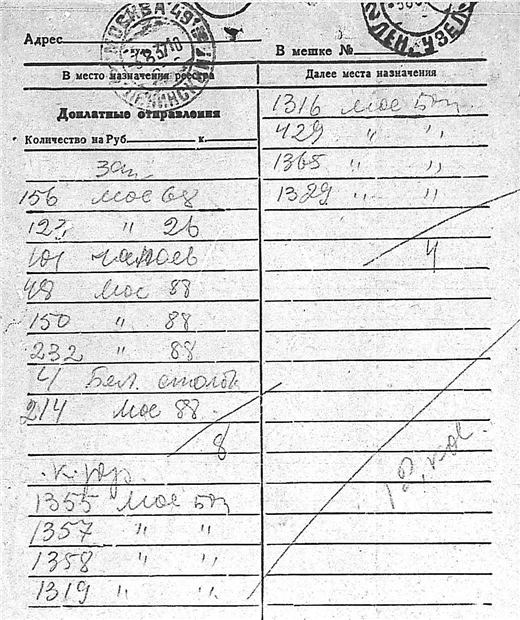 МОСКВА 49
ЛЕН. УЗЕЛ
Адрес
В мешке №
В место назначения реестра
Далее места назначения
Доплатные отправления
Количество на Руб. к.
зак
156 мос 68
123 " 26
101 чапаев
48 мос 88
150 " 88
232 " 88
41 Бел. столб
214 мос 88
8
1355 мос
1357 " "
1358 " "
1319 " "
1316 мос
429 " "
1365 "
1329 " "
4